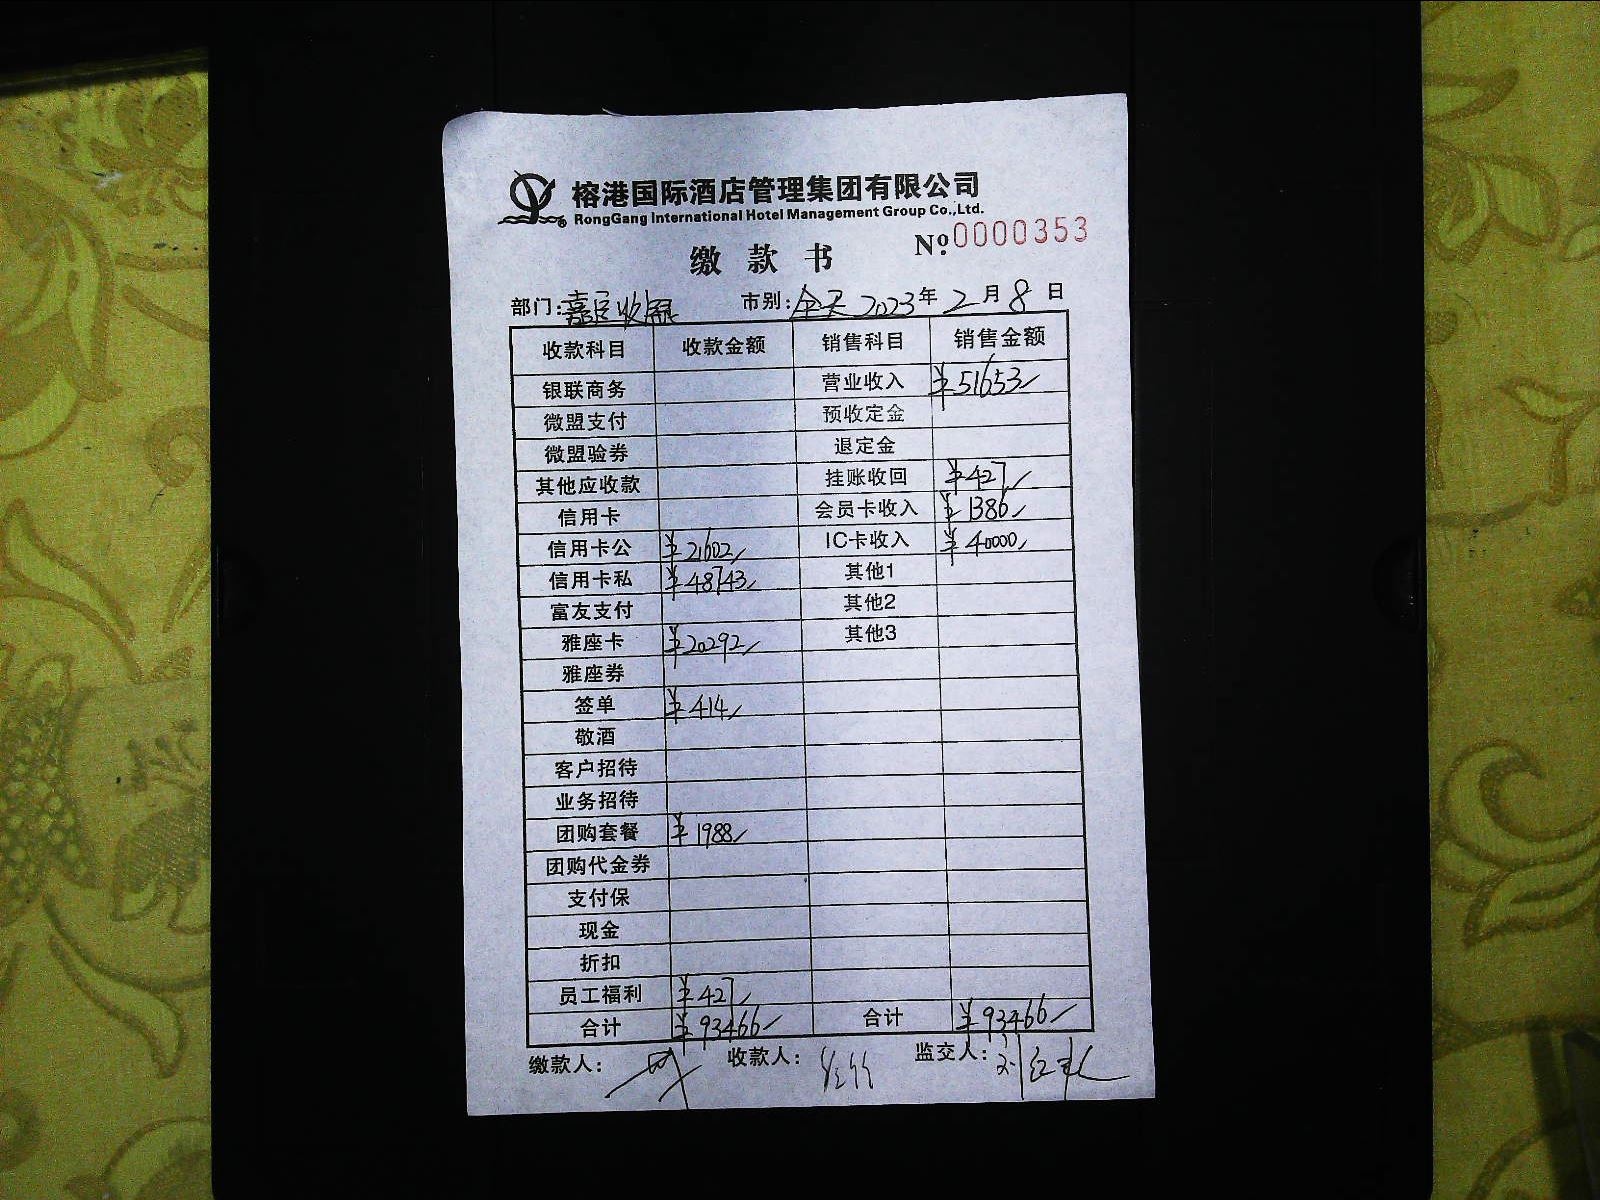 榕港国际酒店管理集团有限公司
RongGang International Hotel Management Group Co.,Ltd.
缴款书 №0000353
部门:嘉定收银 市别:全天 2023年2月8日
收款科目 收款金额 销售科目 销售金额
银联商务 营业收入 ¥51653
微盟支付 预收定金
微盟验券 退定金
其他应收款 挂账收回 ¥427
信用卡 会员卡收入 ¥1386
信用卡公 ¥21602 IC卡收入 ¥40000
信用卡私 ¥48743 其他1
富友支付 其他2
雅座卡 ¥20292 其他3
雅座券
签单 ¥414
敬酒
客户招待
业务招待
团购套餐 ¥1988
团购代金券
支付保
现金
折扣
员工福利 ¥427
合计 ¥93466 合计 ¥93466
缴款人: 收款人: 监交人: